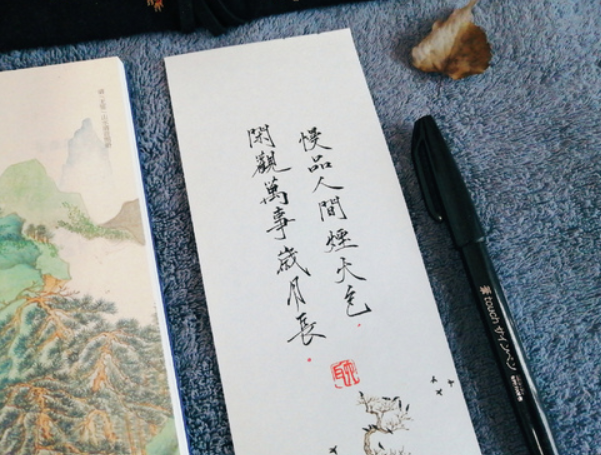 慢品人間煙火色
閑觀萬事歲月長
筆touch サインペン